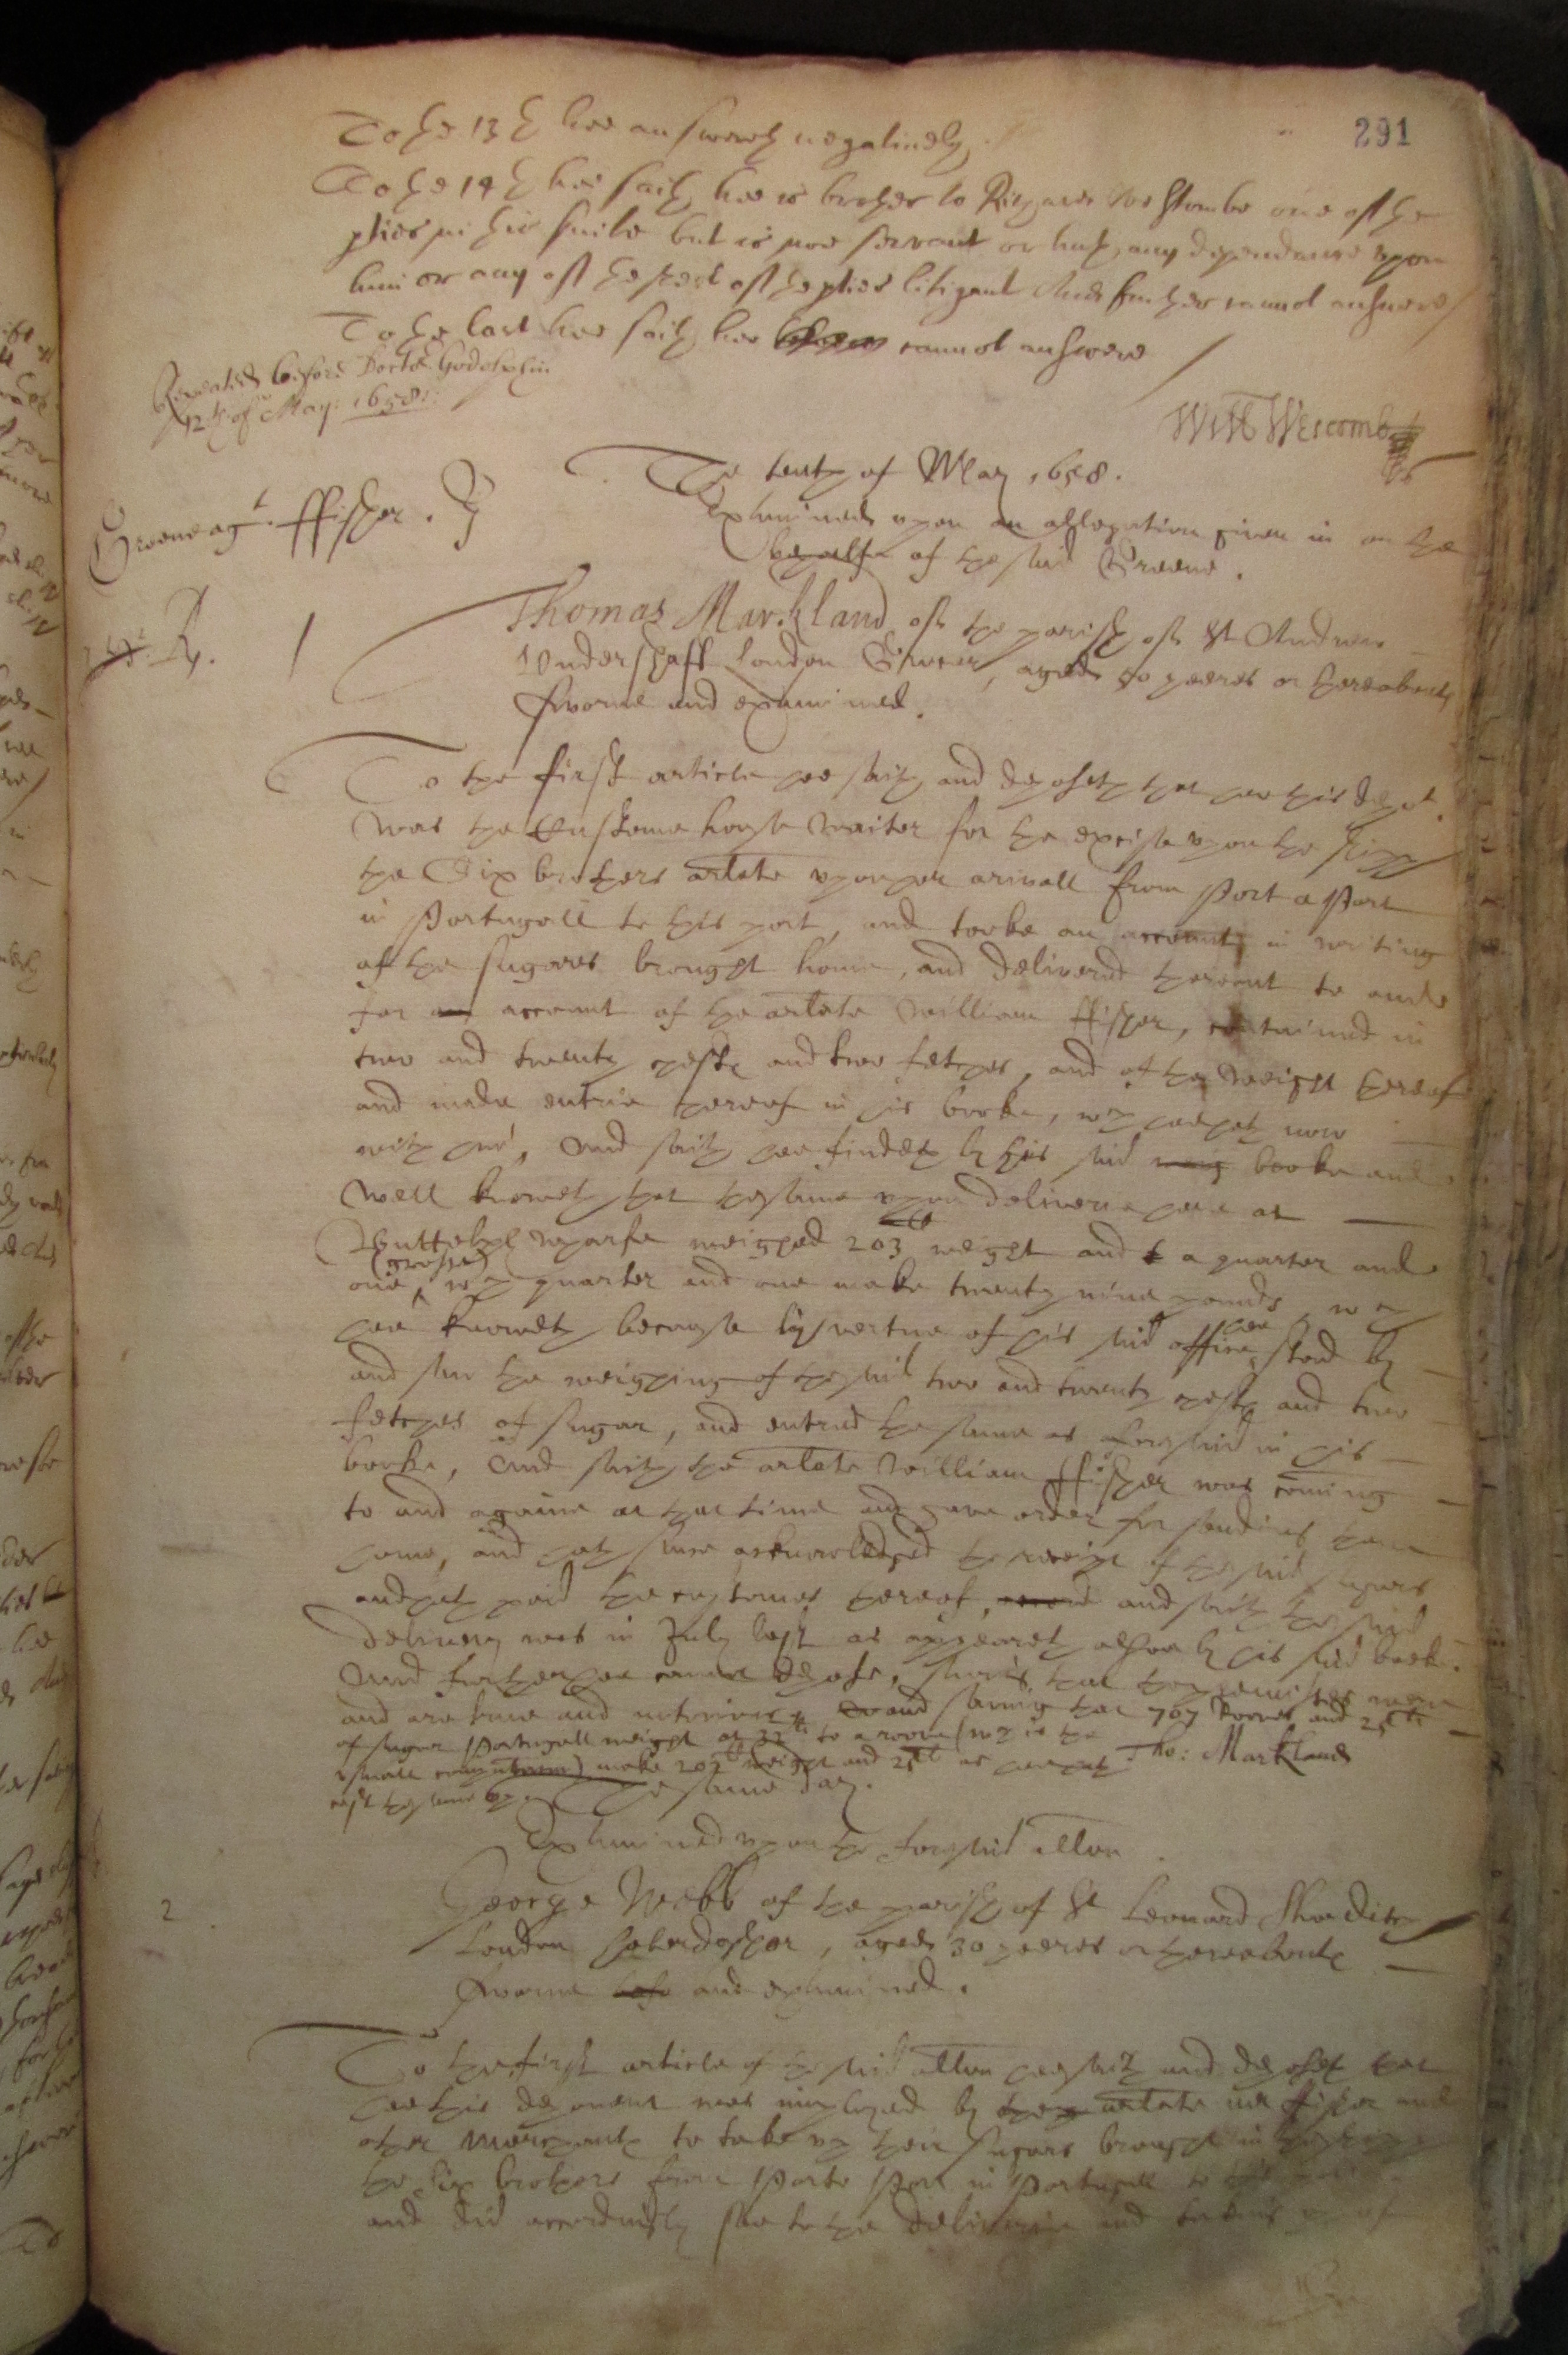 291
To the 13th hee answereth negatively.
To the 14th hee saith hee is brother to Richard Westcombe one of the
pties in this suite but is noe servant or hath any dependance upon
him or any of the rest of the pties litigant And further cannot answere
To the last hee saith hee cannot answere
Repeated before Doctor Godolphin
12th of May: 1658:
Will Wescombe
The tenth of May 1658.
Examined upon an allegation given in on the
behalfe of the said Greene.
Greene agt. ffisher.
Thomas Markland of the parish of St Andrew
Undershaft London Grocer, aged 50 yeeres or thereabouts
sworne and examined.
1
To the first article hee saith and deposeth that hee this dept.
was the Custome house waiter for the excise upon the shipp
the Six brothers arlate upon her arivall from Port a Port
in Portugall to this port, and tooke an account in writing
of the sugares brought home, and delivered thereout to and
for account of the arlate William ffisher, contained in
two and twenty chests and two fetches, and of the weight thereof
and made entrie thereof in his booke, wch hee hath now
with him, And saith hee findeth by his said booke and
well knoweth that the same upon deliverie here at
Buttolph wharfe weighed 203 C weight and a quarter and
one (grosse), wch quarter and one make twenty nine pounds, wch
hee knoweth because by vertue of his said office hee stood by
and saw the weighing of the said two and twenty chests and two
fetches of sugar, and entred the same as foresaid in his
booke, And saith the arlate William ffisher was coming
to and againe at that time and gave order for sending them
home, and hath since acknowledged the receipt of the said sugars
and hath paid the customes thereof, and saith the said
delivery was in July last as appeareth alsoe by his said booke.
And further hee cannot depose, saving that the premisses were
and are true and notorious, and saving that 707 Rooves and 25 lb
of sugar Portugall weight at 32 lb to a roove (wch is the
usuall computation) make 202 C weight and 25 lb as hee hath
cast the same up
Tho: Markland
The same day.
Examined upon the foresaid allon
2
George Webb of the parish of St Leonard Shoreditch
London haberdasher, aged 30 yeeres or thereabouts
sworne and examined.
To the first article of the said allon hee saith and deposeth that
hee this deponent was imployed by arlate mr ffisher and
other merchants to take up their sugars brought in the shipp
the Six brothers from Porto Port in Portugall to this port
and did accordingly see to the deliverie and taking up of